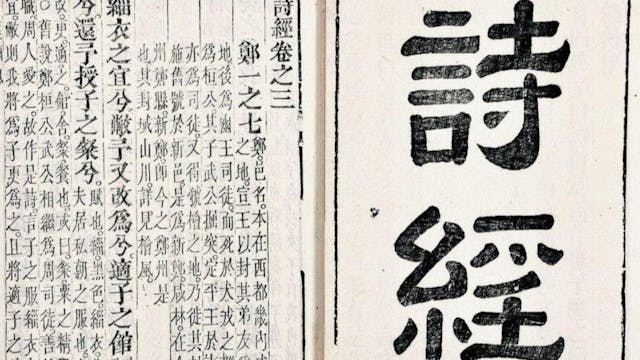 詩
經
詩經卷之三
鄭一之七
鄭。邑名。本在西都畿內
之地。宣王以封其弟友後
地後爲幽王司徒而死於犬戎之難
爲桓公其子武公掘突定平王於
亦爲司徒又得虢檜之地乃徙其
施舊號於新邑是爲新鄭咸林在今
州鄭縣新鄭即今之鄭州是
也其封域山川詳見檜風。
緇衣之宜兮敝予又改爲兮。適子之館
兮還予授子之粲兮。
賦也。緇黑色。緇衣。
夫居私朝之服也。
改。更。適。之。館。舍。粲。餐也。或曰。粲。粟之精
○舊說鄭桓公武公相繼爲周司徒善
職周人愛之。故作是詩。言子之服緇衣
宜。敝則我將爲子更爲之。且將適子之